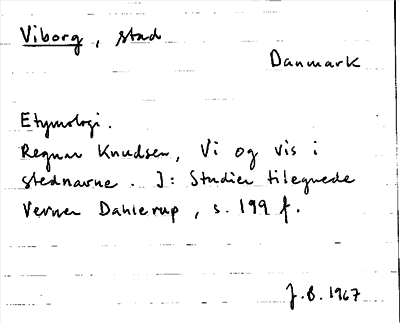 Viborg, stad
Danmark
Etymologi.
Regnar Knudsen, Vi og vis i
stednavne. I: Studier tilegnede
Verner Dahlerup, s. 199 f.
J.B. 1967